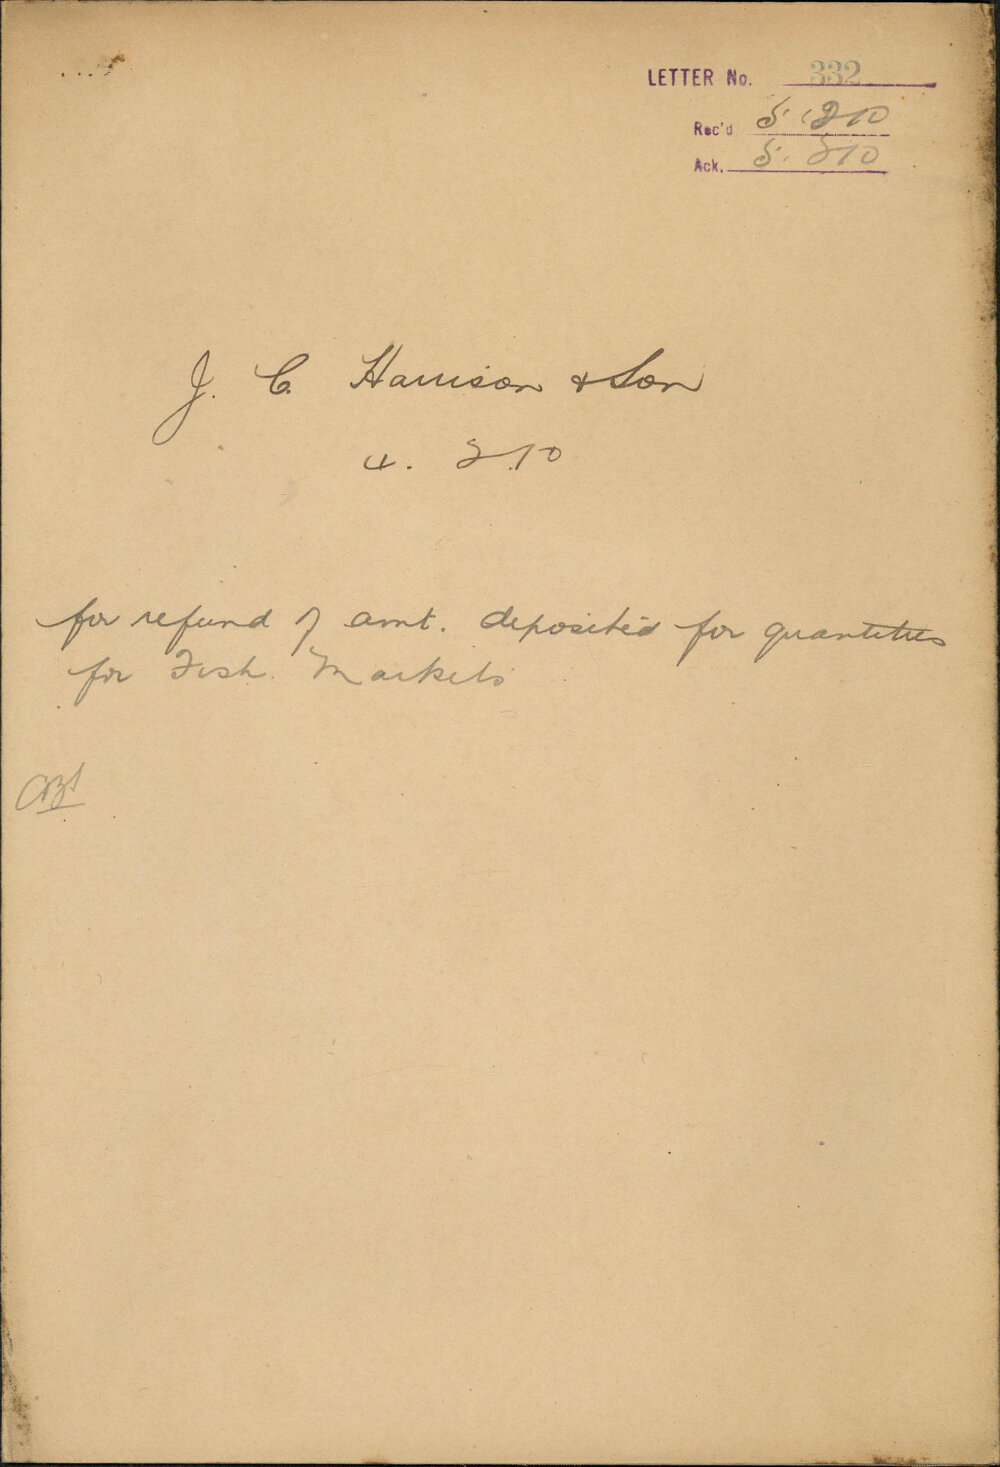 LETTER No. 332
Rec'd 5. 2 10
Ack. 5. 2 10
J. C. Harrison & Son
4. 2.10
for refund of amt. deposited for quantities
for Fish Markets